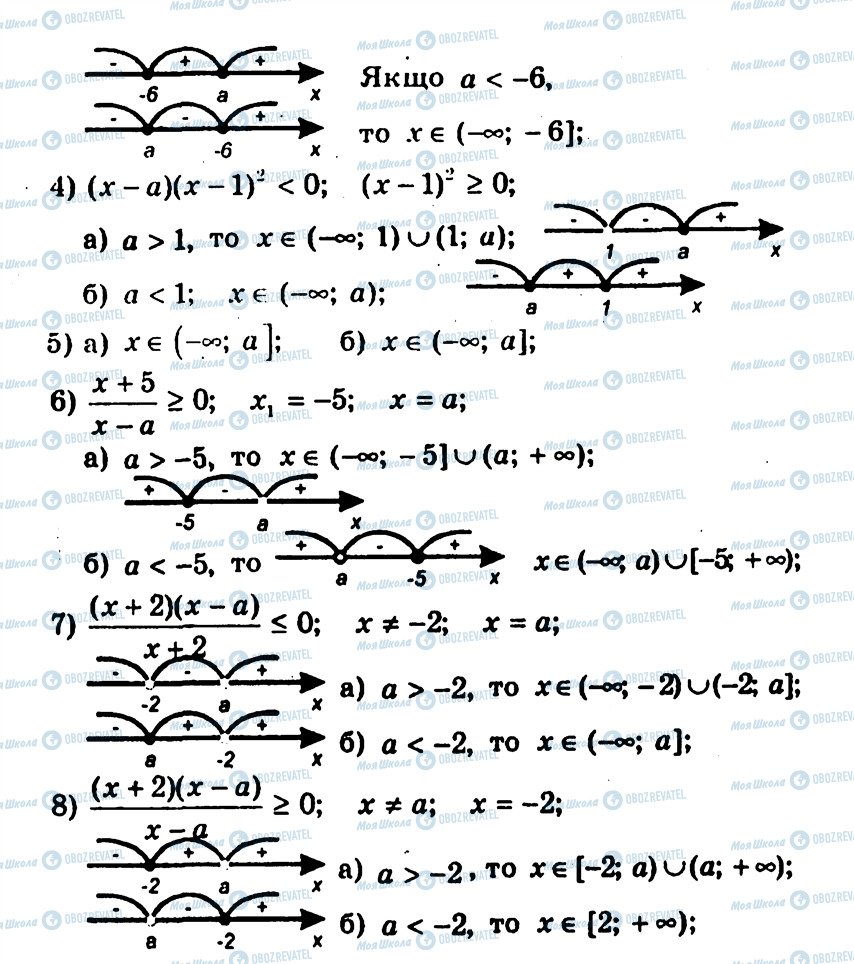 - + +
-6 a x
Якщо a < –6,
- - +
a -6 x
то x ∈ (–∞; – 6];
4) (x – a)(x – 1)² < 0; (x – 1)² ≥ 0;
- - +
1 a x
а) a > 1, то x ∈ (–∞; 1) ∪ (1; a);
- + +
a 1 x
б) a < 1; x ∈ (–∞; a);
5) а) x ∈ (–∞; a]; б) x ∈ (–∞; a];
6) (x + 5)/(x – a) ≥ 0; x₁ = –5; x = a;
а) a > –5, то x ∈ (–∞; – 5] ∪ (a; + ∞);
+ - +
-5 a x
б) a < –5, то
+ - +
a -5 x
x ∈ (–∞; a) ∪ [–5; +∞);
7) ((x + 2)(x – a))/(x + 2) ≤ 0; x ≠ –2; x = a;
- - +
-2 a x
а) a > –2, то x ∈ (–∞; – 2) ∪ (–2; a];
- + +
a -2 x
б) a < –2, то x ∈ (–∞; a];
8) ((x + 2)(x – a))/(x – a) ≥ 0; x ≠ a; x = –2;
- + +
-2 a x
а) a > –2, то x ∈ [–2; a) ∪ (a; +∞);
- - +
a -2 x
б) a < –2, то x ∈ [2; +∞);
Моя Школа OBOZREVATEL